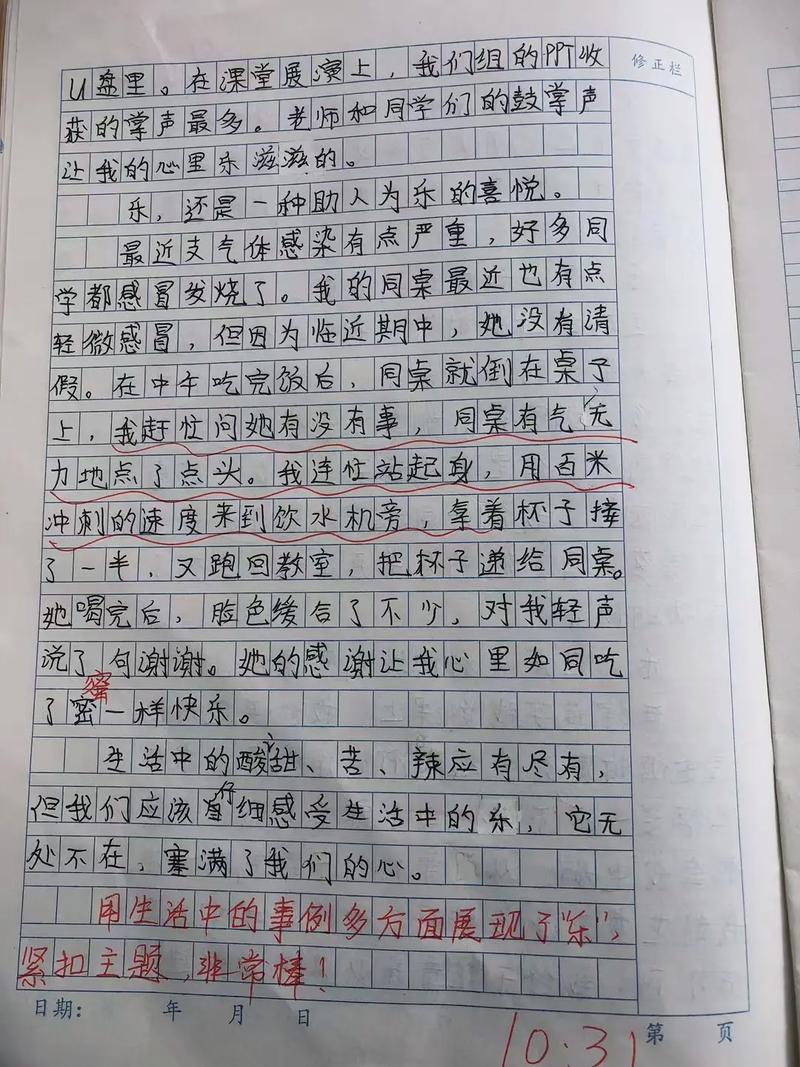 修正栏
U盘里。在课堂展演上，我们组的PPT收
获的掌声最多。老师和同学们的鼓掌声
让我的心里乐滋滋的。
乐，还是一种助人为乐的喜悦。
最近支气体感染有点严重，好多同
学都感冒发烧了。我的同桌最近也有点
轻微感冒，但因为临近期中，她没有请
假。在中午吃完饭后，同桌就倒在桌子
上，我赶忙问她有没有事，同桌有气无
力地点了点头。我连忙站起身，用百米
冲刺的速度来到饮水机旁，拿着杯子接
了一半，又跑回教室，把杯子递给同桌。
她喝完后，脸色缓合了不少，对我轻声
说了句谢谢。她的感谢让我心里如同吃
蜜
了密一样快乐。
生活中的酸、甜、苦、辣应有尽有，
但我们应该仔细感受生活中的乐，它无
处不在，塞满了我们的心。
用生活中的事例多方面展现了"乐"，
紧扣主题，非常棒！
日期： 年 月 日
10.31
第 页